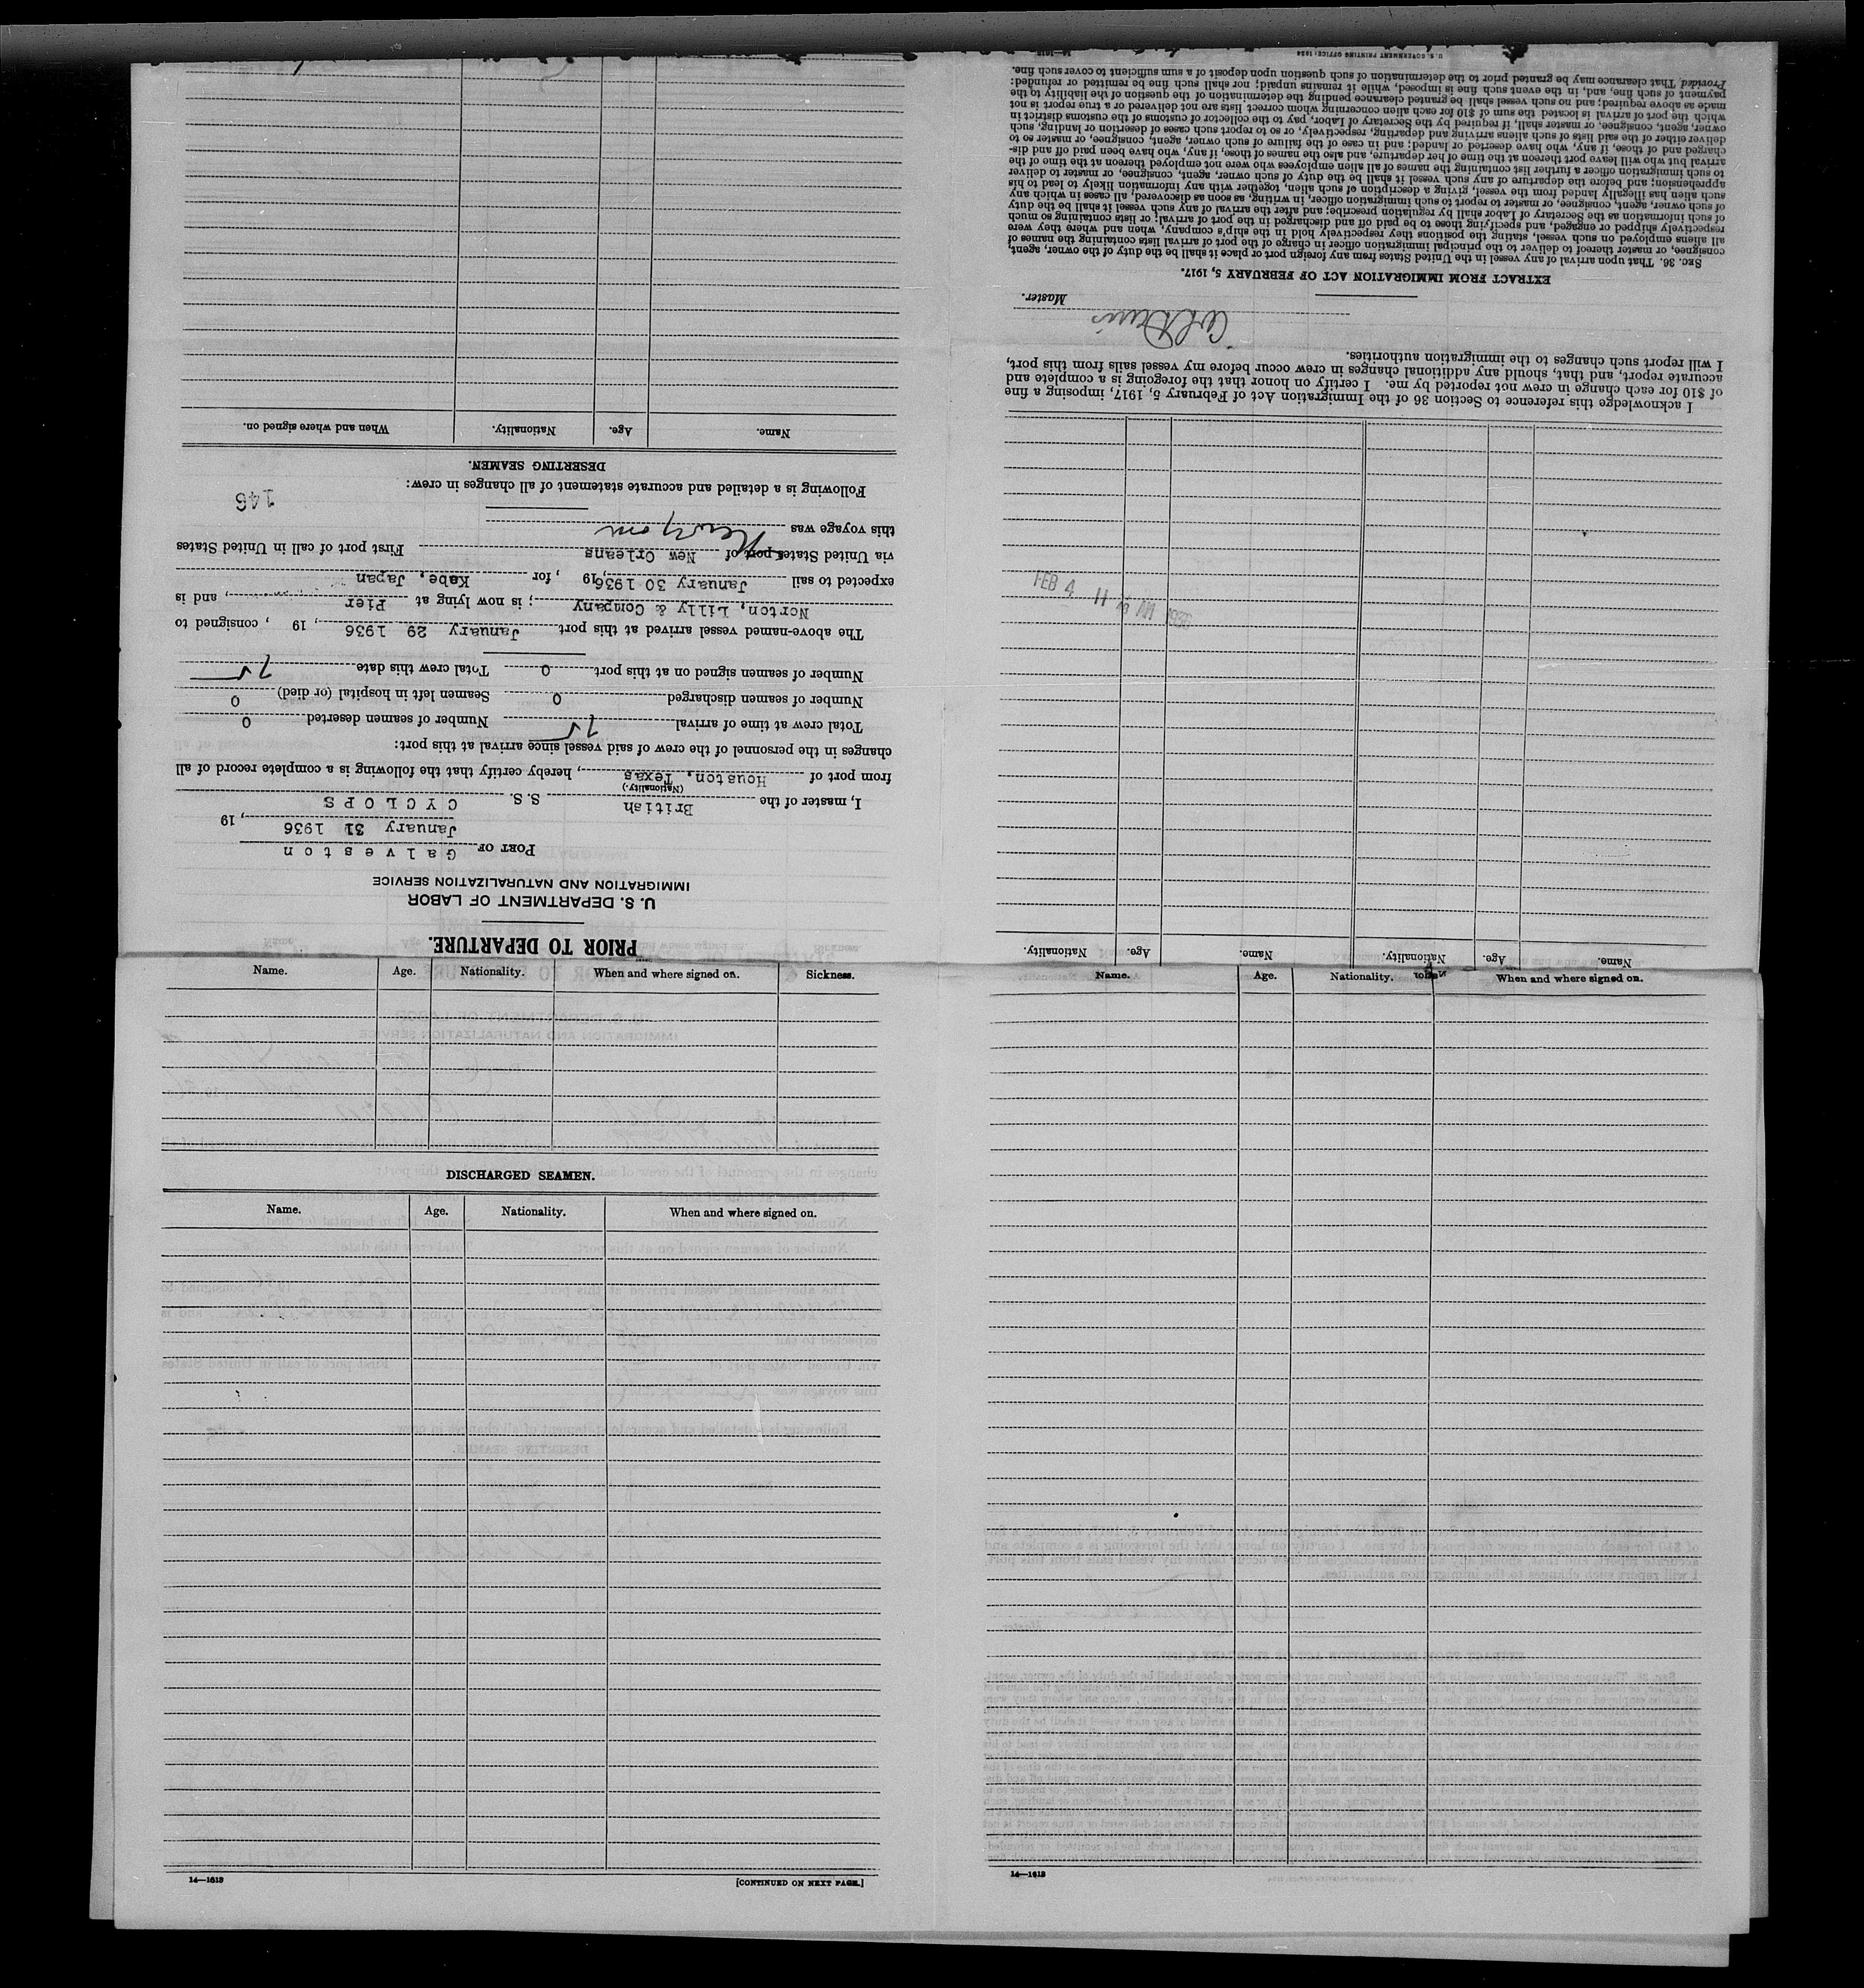 PRIOR TO DEPARTURE.
U. S. DEPARTMENT OF LABOR
IMMIGRATION AND NATURALIZATION SERVICE
PORT OF Galveston
January 31 1936, 19
I, master of the British S. S. CYCLOPS
(Nationality.)
from port of Houston, Texas, hereby certify that the following is a complete record of all
changes in the personnel of the crew of said vessel since arrival at this port:
Total crew at time of arrival 75 Number of seamen deserted 0
Number of seamen discharged 0 Seamen left in hospital (or died) 0
Number of seamen signed on at this port 0 Total crew this date 75
The above-named vessel arrived at this port January 29 1936, 19 , consigned to
Norton, Lilly & Company; is now lying at Pier, and is
expected to sail January 30 1936, 19 , for Kobe, Japan
via United States port of New Orleans First port of call in United States
this voyage was New York
Following is a detailed and accurate statement of all changes in crew:
146
DESERTING SEAMEN.
Name. Age. Nationality. When and where signed on.
Name. Age. Nationality. Name. Age. Nationality.
FEB 4 11 AM 1936
I acknowledge this reference to Section 36 of the Immigration Act of February 5, 1917, imposing a fine
of $10 for each change in crew not reported by me. I certify on honor that the foregoing is a complete and
accurate report, and that, should any additional changes in crew occur before my vessel sails from this port,
I will report such changes to the immigration authorities.
Master.
EXTRACT FROM IMMIGRATION ACT OF FEBRUARY 5, 1917.
SEC. 36. That upon arrival of any vessel in the United States from any foreign port or place it shall be the duty of the owner, agent,
consignee, or master thereof to deliver to the principal immigration officer in charge of the port of arrival lists containing the names of
all aliens employed on such vessel, stating the positions they respectively hold in the ship's company, when and where they were
respectively shipped or engaged, and specifying those to be paid off and discharged in the port of arrival; or lists containing so much
of such information as the Secretary of Labor shall by regulation prescribe; and after the arrival of any such vessel it shall be the duty
of such owner, agent, consignee, or master to report to such immigration officer, in writing, as soon as discovered, all cases in which any
such alien has illegally landed from the vessel, giving a description of such alien, together with any information likely to lead to his
apprehension; and before the departure of any such vessel it shall be the duty of such owner, agent, consignee, or master to deliver
to such immigration officer a further list containing the names of all alien employees who were not employed thereon at the time of the
arrival but who will leave port thereon at the time of her departure, and also the names of those, if any, who have been paid off and dis-
charged and of those, if any, who have deserted or landed; and in case of the failure of such owner, agent, consignee, or master so to
deliver either of the said lists of such aliens arriving and departing, respectively, or so to report such cases of desertion or landing, such
owner, agent, consignee, or master shall, if required by the Secretary of Labor, pay to the collector of customs of the customs district in
which the port of arrival is located the sum of $10 for each alien concerning whom correct lists are not delivered or a true report is not
made as above required; and no such vessel shall be granted clearance pending the determination of the question of the liability to the
payment of such fine, and, in the event such fine is imposed, while it remains unpaid; nor shall such fine be remitted or refunded:
Provided, That clearance may be granted prior to the determination of such question upon deposit of a sum sufficient to cover such fine.
U. S. GOVERNMENT PRINTING OFFICE: 1934
Name. Age. Nationality. When and where signed on. Sickness.
DISCHARGED SEAMEN.
Name. Age. Nationality. When and where signed on.
14—1613
[CONTINUED ON NEXT PAGE.]
Name. Age. Nationality. When and where signed on.
14—1613